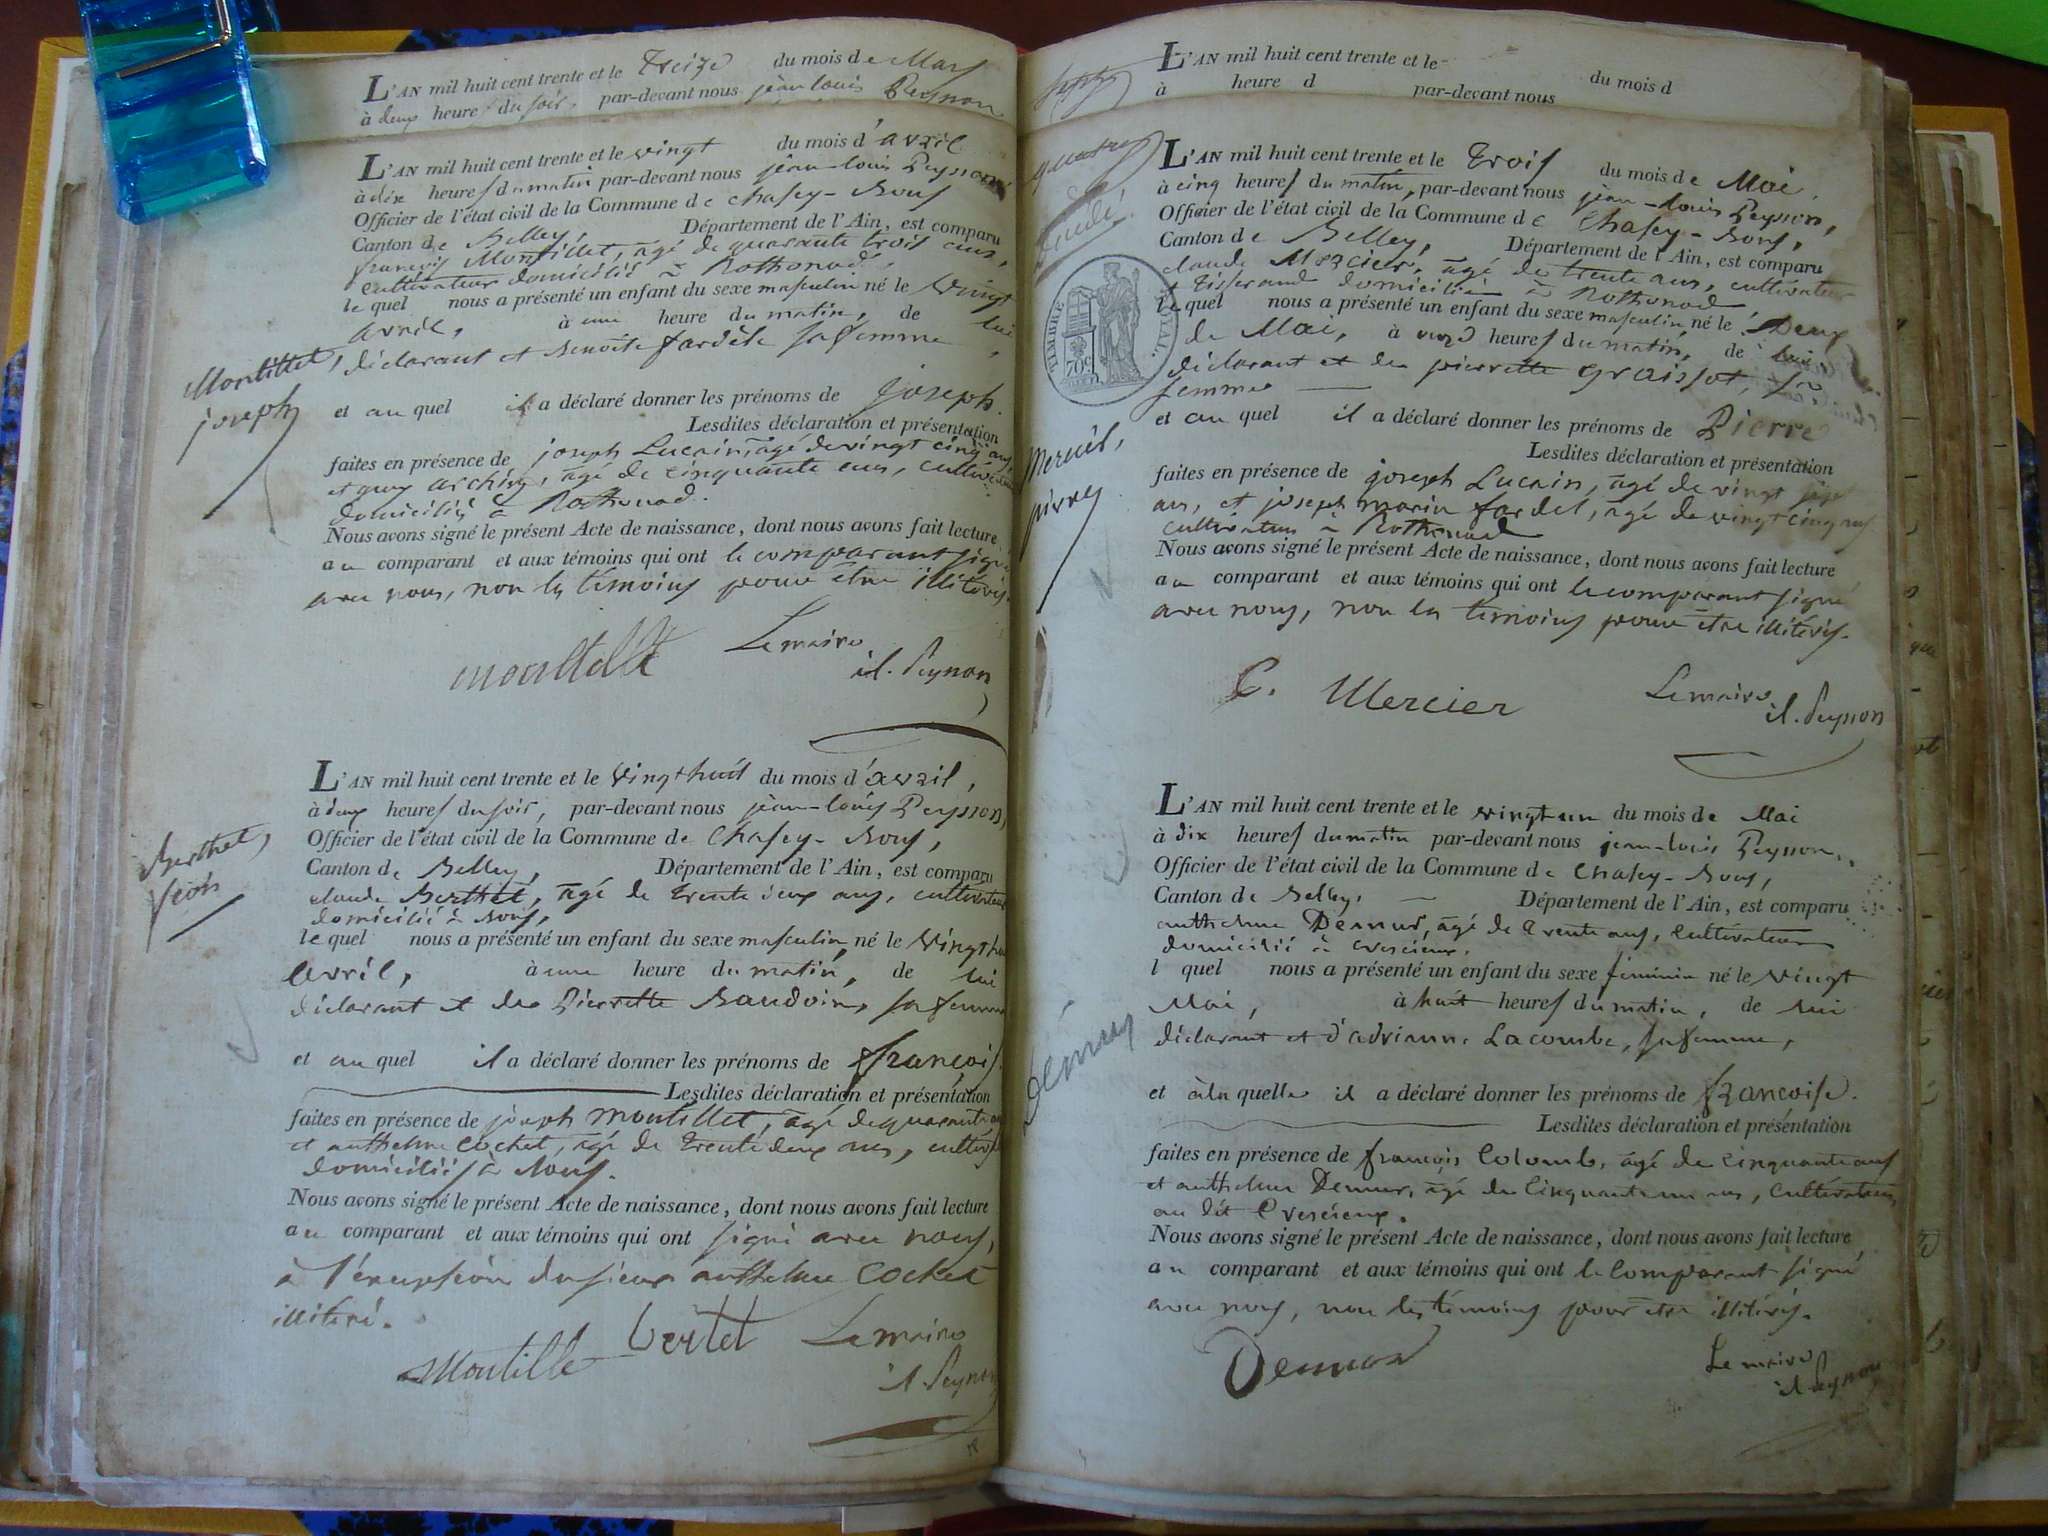 L'AN mil huit cent trente et le Treize du mois de Mars
à deux heures du soir, par-devant nous jean louis Peysson
L'AN mil huit cent trente et le vingt du mois d'avril
à dix heures du matin par-devant nous jean-louis Peysson
Officier de l'état civil de la Commune de Chasey-Bons
Canton de Belley, Département de l'Ain, est comparu
françois Montillet, âgé de quarante trois ans,
cultivateur domicilié à Rothonod,
le quel nous a présenté un enfant du sexe masculin né le vingt
avril, à une heure du matin, de lui
déclarant et Benoite fardèle sa femme,
Montillet,
joseph
et au quel il a déclaré donner les prénoms de Joseph.
Lesdites déclaration et présentation
faites en présence de joseph Lucain, âgé de vingt cinq ans,
et âgé de cinquante ans,
domiciliés à Rothonod.
Nous avons signé le présent Acte de naissance, dont nous avons fait lecture
au comparant et aux témoins qui ont le comparant signé
avec nous, non les témoins pour être illitérés.
Le maire
montillet jl. Peysson
L'AN mil huit cent trente et le vingt huit du mois d'avril,
à deux heures du soir, par-devant nous jean-louis Peysson,
Officier de l'état civil de la Commune de Chasey-Bons,
Canton de Belley, Département de l'Ain, est comparu
claude Berthet, âgé de trente deux ans, cultivateur
domicilié à Bons,
Berthet,
le quel nous a présenté un enfant du sexe masculin né le vingt huit
avril, à une heure du matin, de lui
déclarant et de Pierrette Baudoin, sa femme
et au quel il a déclaré donner les prénoms de françois.
Lesdites déclaration et présentation
faites en présence de joseph montillet, âgé de quarante
et anthelme Cochet, âgé de trente deux ans,
domiciliés à Bons.
Nous avons signé le présent Acte de naissance, dont nous avons fait lecture
au comparant et aux témoins qui ont signé avec nous,
à l'exception du sieur anthelme Cochet
illitéré.
Montille bertet Le maire
jl. Peysson
L'AN mil huit cent trente et le du mois d
à heure d par-devant nous
L'AN mil huit cent trente et le Trois du mois de Mai
à cinq heures du matin, par-devant nous jean-louis Peysson,
Officier de l'état civil de la Commune de Chasey-Bons,
Canton de Belley, Département de l'Ain, est comparu
claude Mercier, âgé de trente ans, cultivateur
et tisserand domicilié à Rothonod
TIMBRE ROYAL
70c
le quel nous a présenté un enfant du sexe masculin né le Deux
de Mai, à onze heures du matin, de lui
déclarant et de pierrette Graissot, sa
femme
et au quel il a déclaré donner les prénoms de Pierre
Lesdites déclaration et présentation
faites en présence de joseph Lucain, âgé de vingt
ans, et joseph marin fardel, âgé de vingt cinq ans
cultivateurs à Rothonod
Nous avons signé le présent Acte de naissance, dont nous avons fait lecture
au comparant et aux témoins qui ont le comparant signé
avec nous, non les témoins pour être illitérés.
C. Mercier Le maire
jl. Peysson
L'AN mil huit cent trente et le vingt un du mois de Mai
à dix heures du matin par-devant nous jean-louis Peysson,
Officier de l'état civil de la Commune de Chasey-Bons,
Canton de Belley, Département de l'Ain, est comparu
anthelme Demur, âgé de trente ans, cultivateur
domicilié à
l quel nous a présenté un enfant du sexe féminin né le vingt
Mai, à huit heures du matin, de lui
déclarant et d'adrianne Lacombe, sa femme,
et à la quelle il a déclaré donner les prénoms de françoise.
Lesdites déclaration et présentation
faites en présence de françois Colomb, âgé de cinquante ans
et anthelme Demur, âgé de cinquante un ans, cultivateurs
au dit
Nous avons signé le présent Acte de naissance, dont nous avons fait lecture
au comparant et aux témoins qui ont le comparant signé
avec nous, non les témoins pour être illitérés.
Le maire
jl Peysson